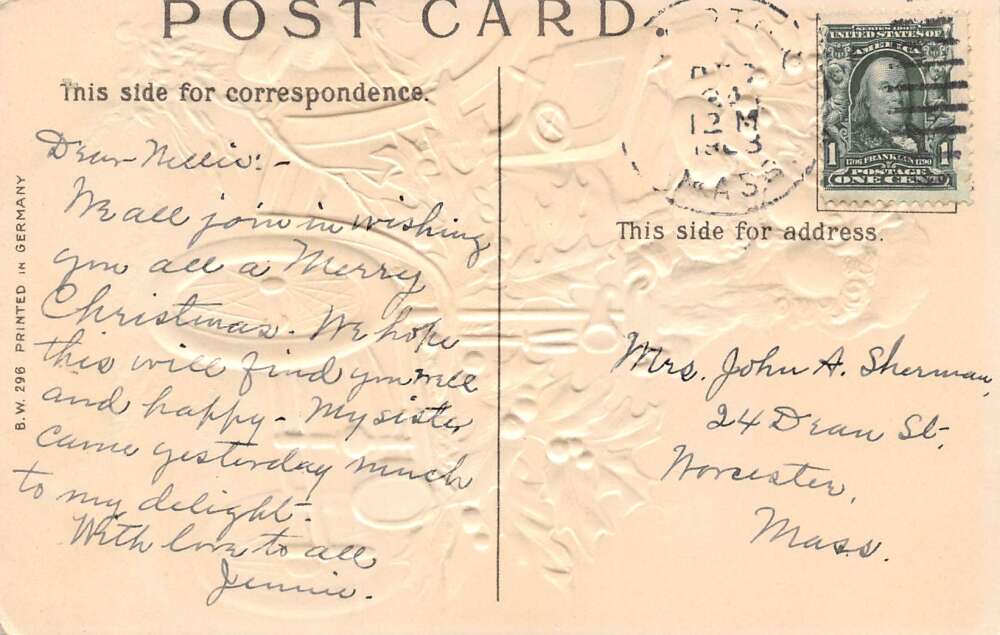 POST CARD.
This side for correspondence.
Dear Nellie:-
We all join in wishing
you all a Merry
Christmas. We hope
this will find you well
and happy - My sister
came yesterday much
to my delight.
With love to all
Jennie.
B.W. 296 PRINTED IN GERMANY
12 M
MASS
SERIES 1902
UNITED STATES OF
AMERICA
1 1
1706 FRANKLIN 1790
POSTAGE
ONE CENT
This side for address.
Mrs. John A. Sherman,
24 Dean St,
Worcester,
Mass.